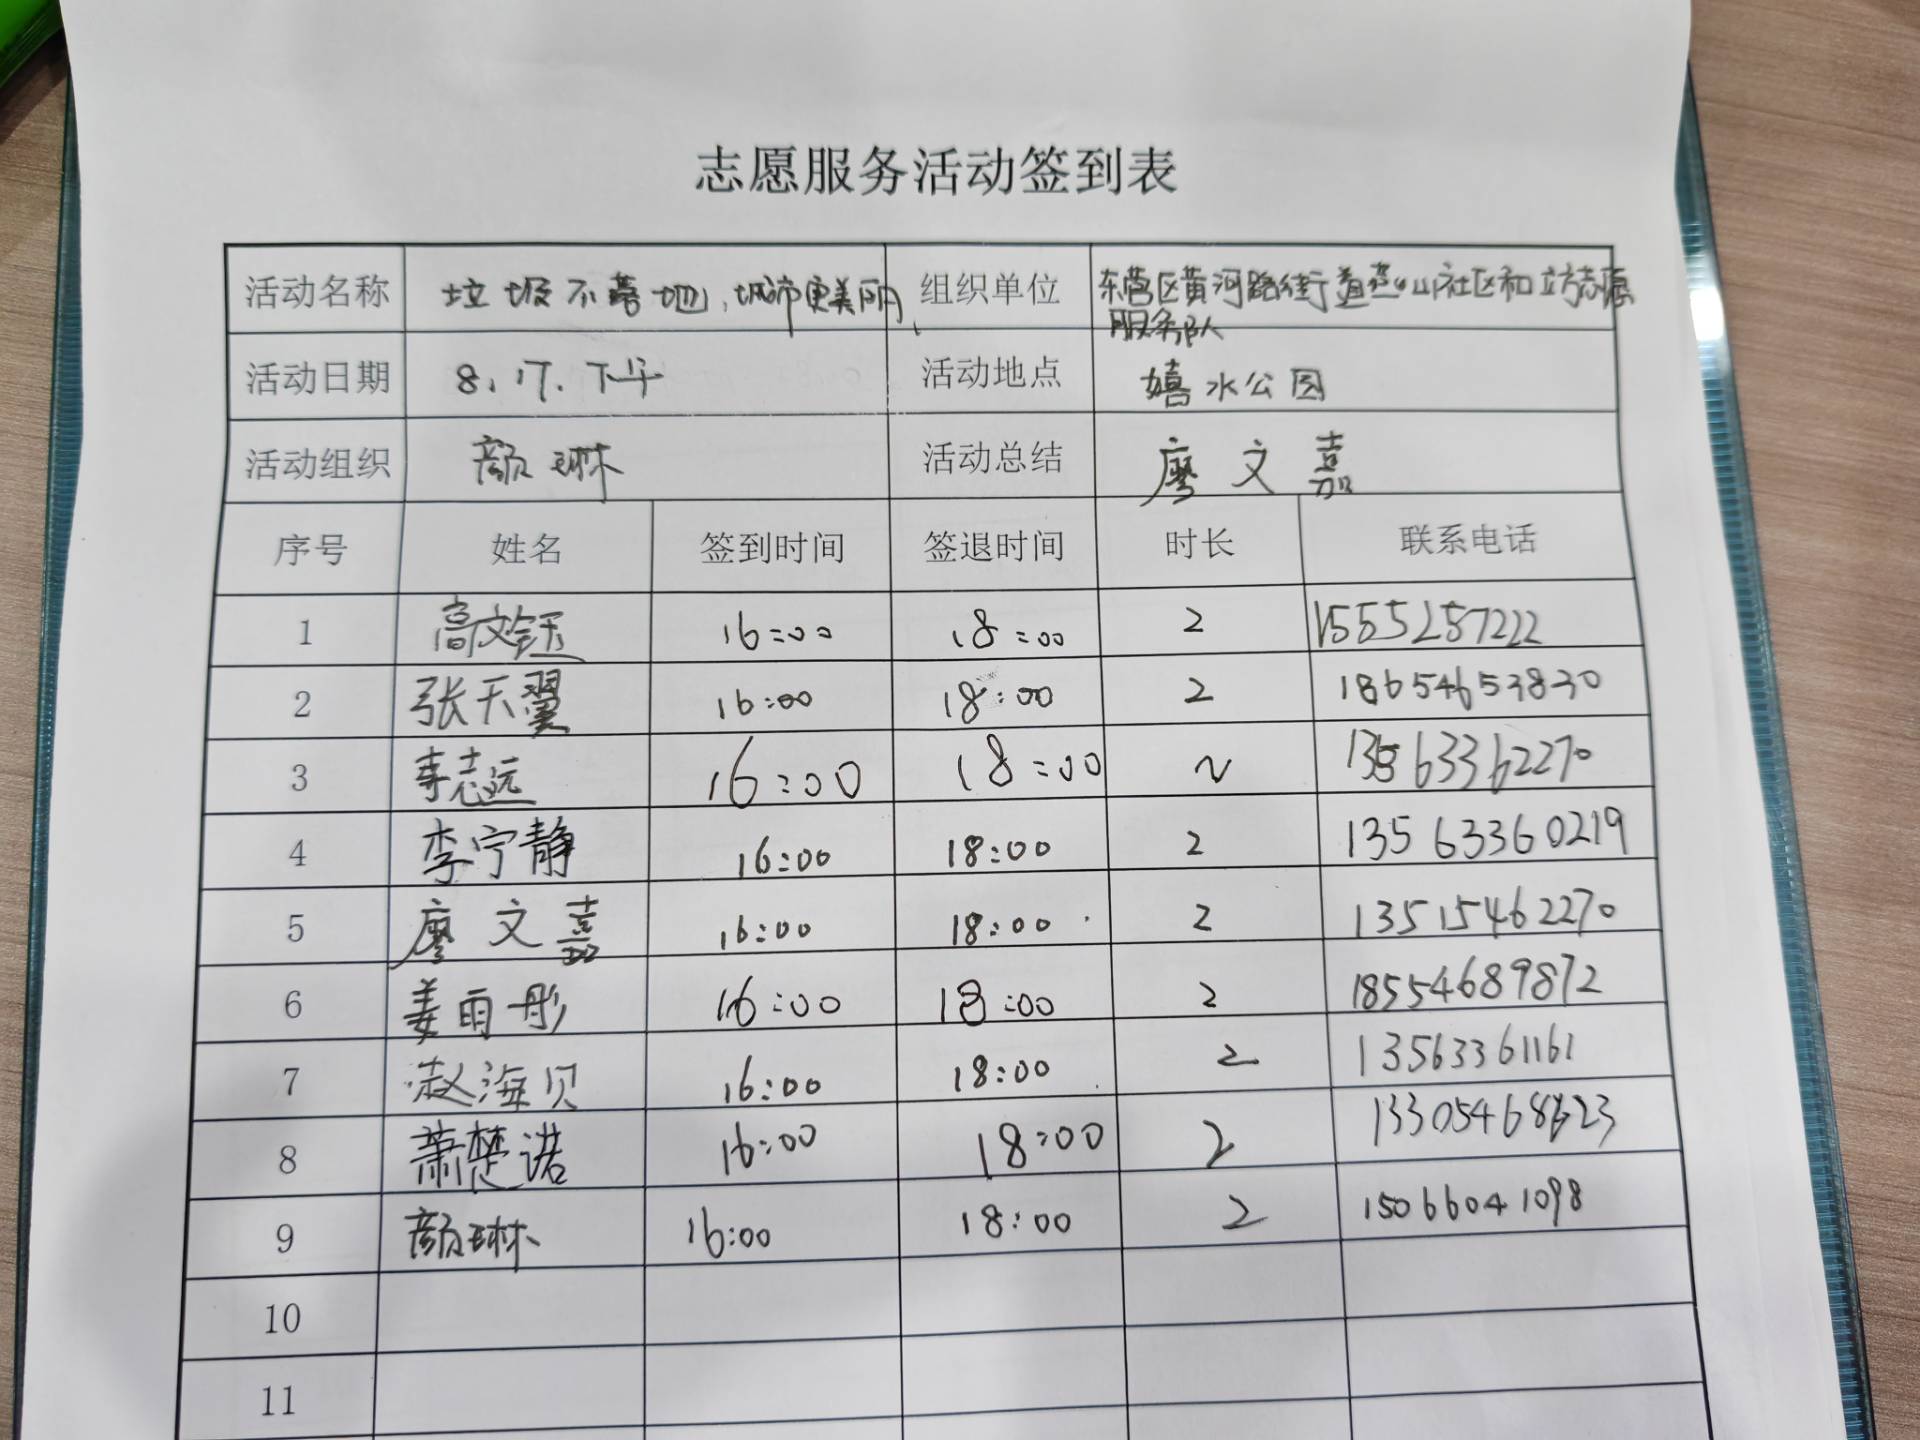 志愿服务活动签到表
活动名称 垃圾不落地,城市更美丽 组织单位 东营区黄河路街道燕山社区和立方志愿
服务队
活动日期 8.17.下午 活动地点 嬉水公园
活动组织 颜琳 活动总结 廖文嘉
序号 姓名 签到时间 签退时间 时长 联系电话
1 高文钰 16:00 18:00 2 1555257222
2 张天翼 16:00 18:00 2 18654653830
3 李志远 16:00 18:00 2 13563362270
4 李宁静 16:00 18:00 2 13563360219
5 廖文嘉 16:00 18:00 2 13515462270
6 姜雨彤 16:00 18:00 2 18554689872
7 赵海贝 16:00 18:00 2 13563361161
8 萧楚诺 16:00 18:00 2
9 颜琳 16:00 18:00 2 15066041098
10
11